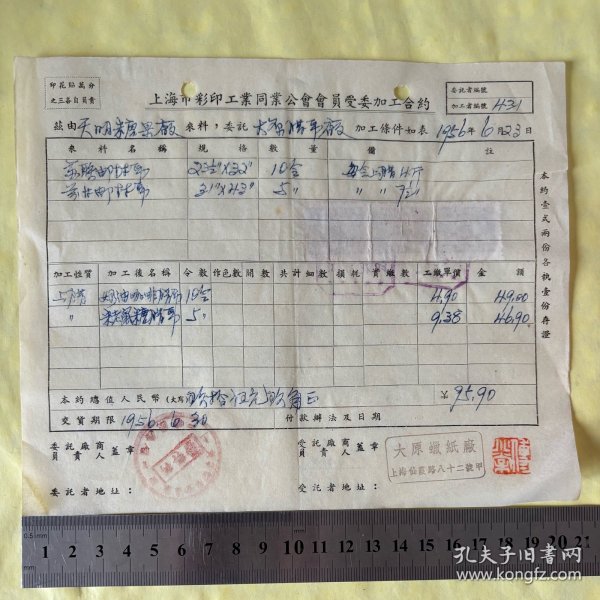 印花貼萬分
之三各自負責
上海市彩印工業同業公會會員受委加工合約
委託者編號
加工者編號 431
茲由天明糖菓廠來料，委託大原蜡紙廠加工條件如表 1956年6月23日
來料名稱 規格 數量 備註
10令
31"×43" 5〃
加工性質 加工後名稱 令數 作色數 開數 共計細數 損耗 實繳數 工繳單價 金額
上蜡 10令 4.90 49.00
〃 5〃 9.38 46.90
本約總值人民幣(大寫)玖拾伍元玖角正 ¥95.90
交貨期限 1956.6.30 付款辦法及日期
委託廠商
負責人 蓋章
受託廠商
負責人 蓋章
大原蠟紙廠
委託者地址：
受託者地址：
本約壹式兩份各執壹份存證
0.5mm
1 2 3 4 5 6 7 8 9 10 11 12 13 14 15 16 17 18 19 20 21
孔夫子旧书网
www.kongfz.com